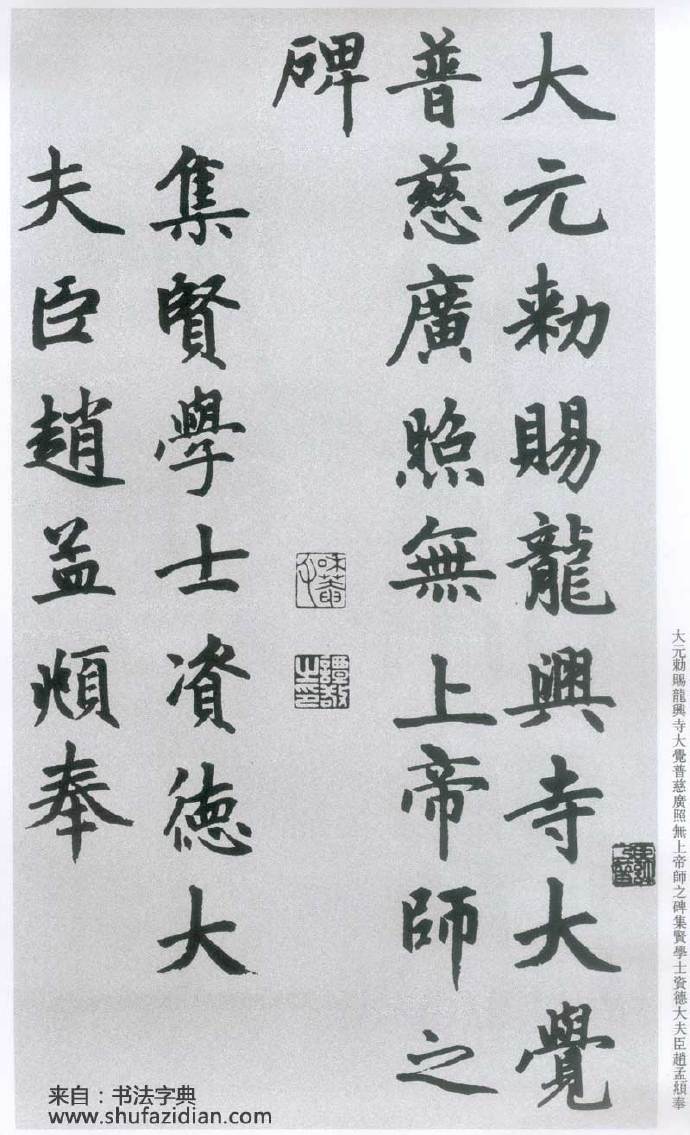 大元勅賜龍興寺大覺
普慈廣照無上帝師之
碑
集賢學士資德大
夫臣趙孟頫奉
大元勅賜龍興寺大覺普慈廣照無上帝師之碑集賢學士資德大夫臣趙孟頫奉
来自：书法字典
www.shufazidian.com